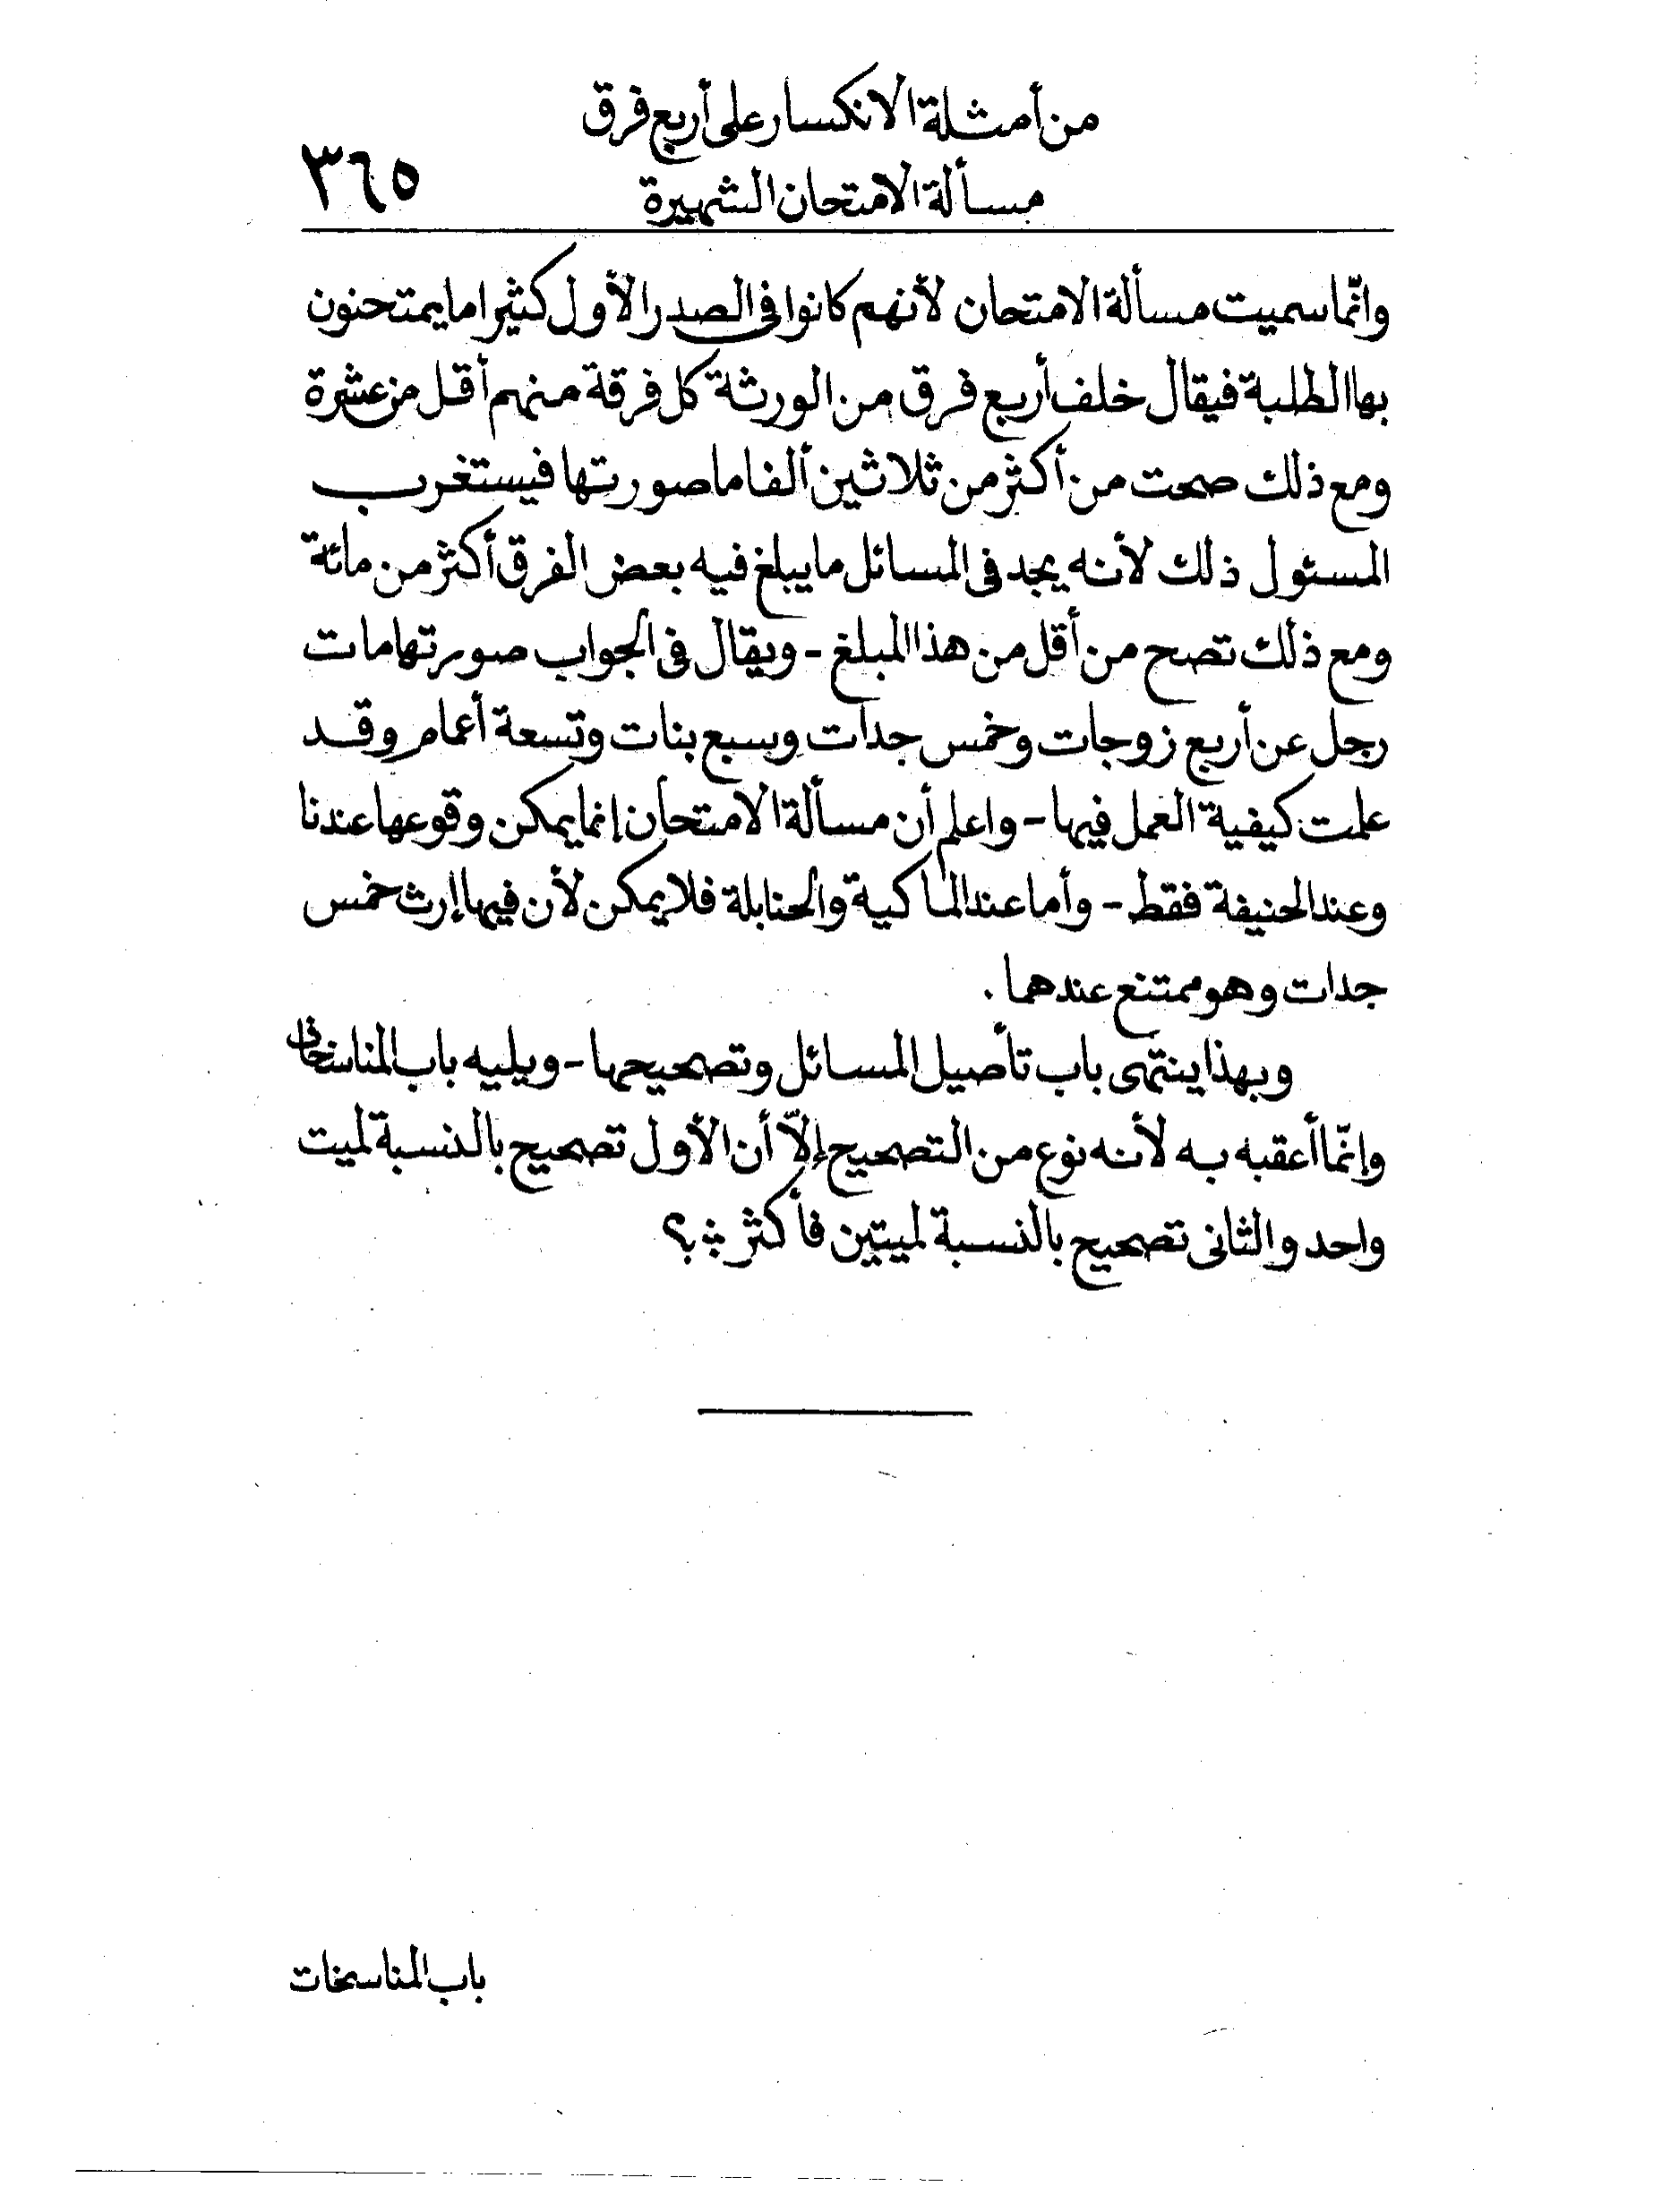 من أمثلة الانكسار على أربع فرق
مسألة الامتحان الشهيرة
٣٦٥
وانّما سميت مسألة الامتحان لأنهم كانوا فى الصدر الأول كثيرا ما يمتحنون
بها الطلبة فيقال خلف أربع فرق من الورثة كل فرقة منهم أقل من عشرة
ومع ذلك صحت من أكثر من ثلاثين ألفا ما صورتها فيستغرب
المسئول ذلك لأنه يجد فى المسائل ما يبلغ فيه بعض الفرق أكثر من مائة
ومع ذلك تصح من أقل من هذا المبلغ - ويقال فى الجواب صورتها مات
رجل عن أربع زوجات وخمس جدات وسبع بنات وتسعة أعمام وقد
علمت كيفية العمل فيها - واعلم أن مسألة الامتحان إنما يمكن وقوعها عندنا
وعند الحنيفة فقط - وأما عند الماكية والحنابلة فلا يمكن لأن فيها إرث خمس
جدات وهو ممتنع عندهما .
وبهذا ينتهى باب تأصيل المسائل وتصحيحها - ويليه باب المناسخات
وإنّما أعقبه به لأنه نوع من التصحيح إلاّ أن الأول تصحيح بالنسبة لميت
واحد والثانى تصحيح بالنسبة لميتين فأكثر
باب المناسخات